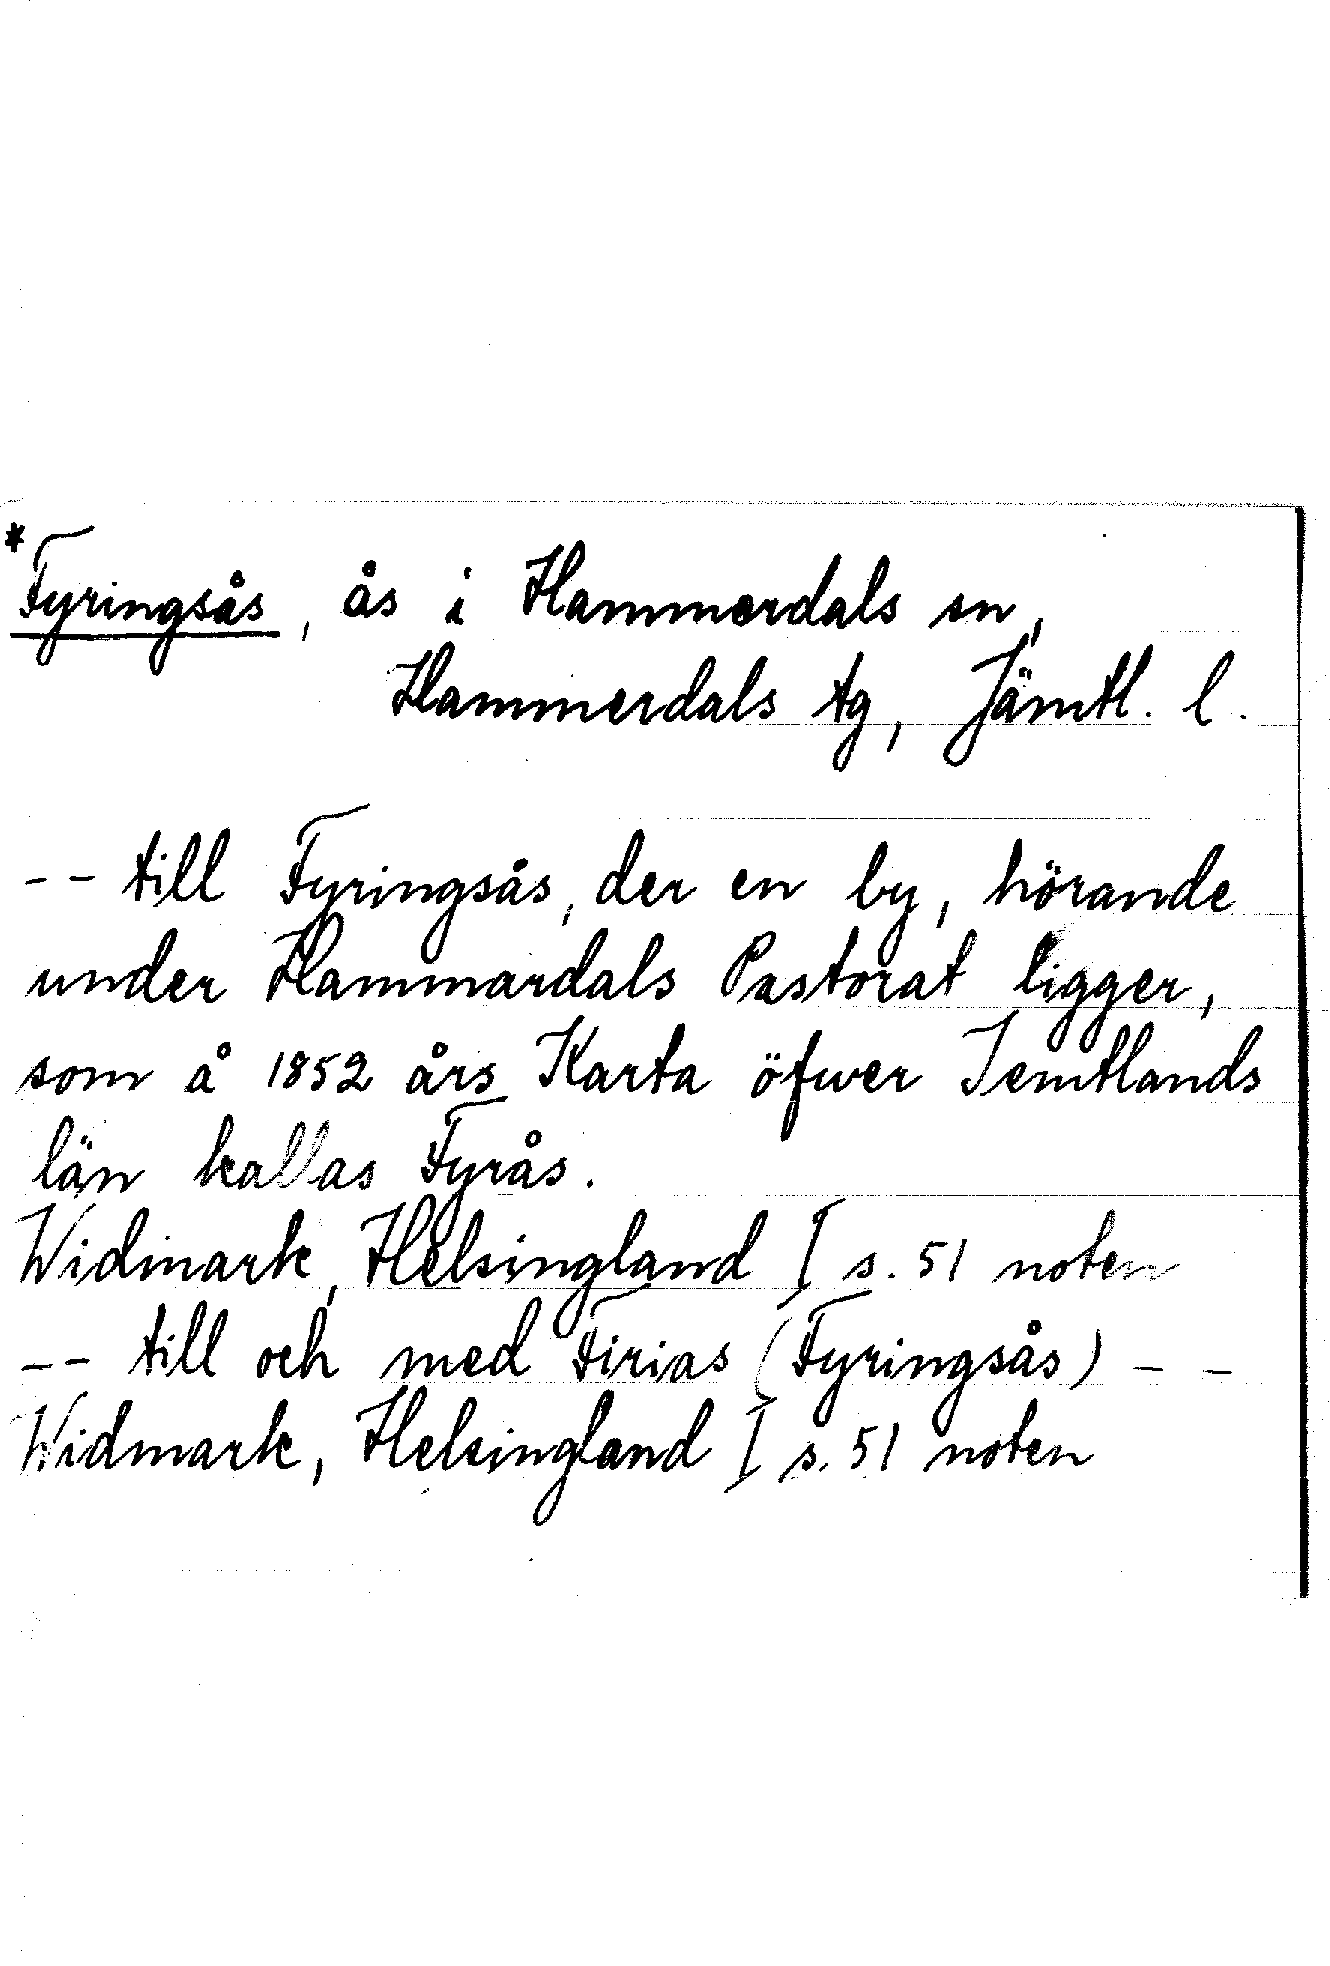 *
Fyringsås, ås i Hammerdals sn,
Hammerdals tg, Jämtl. l.
-- till Fyringsås, der en by, hörande
under Hammardals Pastorat ligger,
som å 1852 års Karta öfwer Jemtlands
län kallas Fyrås.
Widmark, Helsingland I s. 51 noten
-- till och med Firias (Fyringsås) - -
Widmark, Helsingland I s. 51 noten